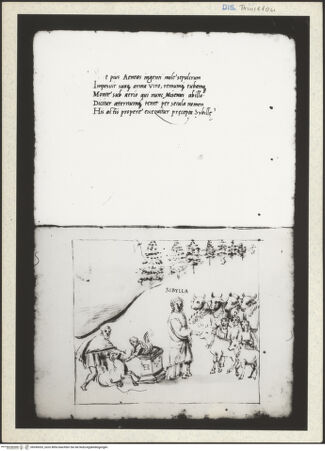 t pius Aeneas ingenti mole sepulcrum
Imponit suaq arma viro, remumq tubamq
Monte sub aerio qui nunc Misenus ab illo
Dicitur aeternumq tenet per secula nomen
His actis propere exequitur precepta Sybillę
SIBYLLA
DIS.